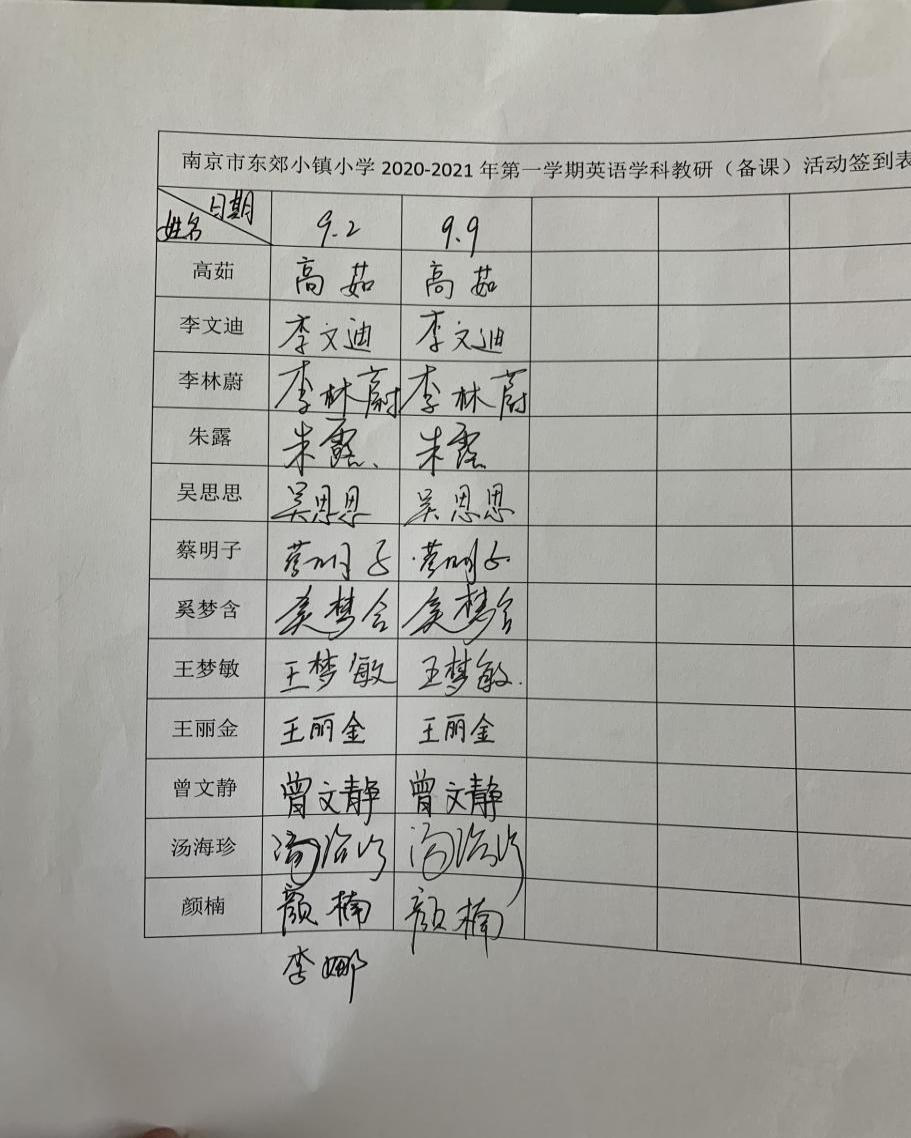 南京市东郊小镇小学 2020-2021 年第一学期英语学科教研（备课）活动签到表
日期
姓名 9.2 9.9
高茹 高茹 高茹
李文迪 李文迪 李文迪
李林蔚 李林蔚 李林蔚
朱露 朱露 朱露
吴思思 吴思思 吴思思
蔡明子 蔡明子 蔡明子
奚梦含 奚梦含 奚梦含
王梦敏 王梦敏 王梦敏
王丽金 王丽金 王丽金
曾文静 曾文静 曾文静
汤海珍 汤海珍 汤海珍
颜楠 颜楠 颜楠
李娜